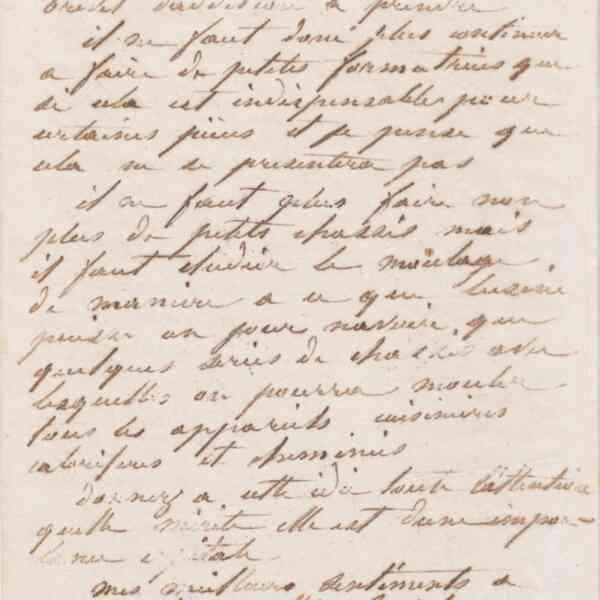 à prendre
il ne faut donc plus continuer
a faire de petits formatures que
si cela est indispensable pour
certaines pièces et je pense que
cela ne se presentera pas
il ne faut plus faire non
plus de petits chassis mais
il faut étudier le moulage
de maniere a ce que lusine
puisse en pour navoir que
quelques series de chassis avec
lesquelles on pourra mouler
tous les appareils cuisinieres
caloriferes et cheminées
donnez a cette idée toute l'attention
quelle mérite elle est dune impor-
tance capitale
mes meilleurs sentiments a